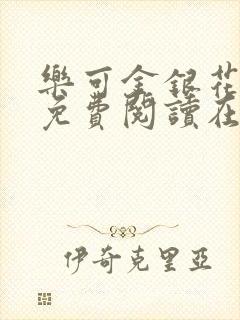 樂可金銀花
免費閱讀在
伊奇克里亞